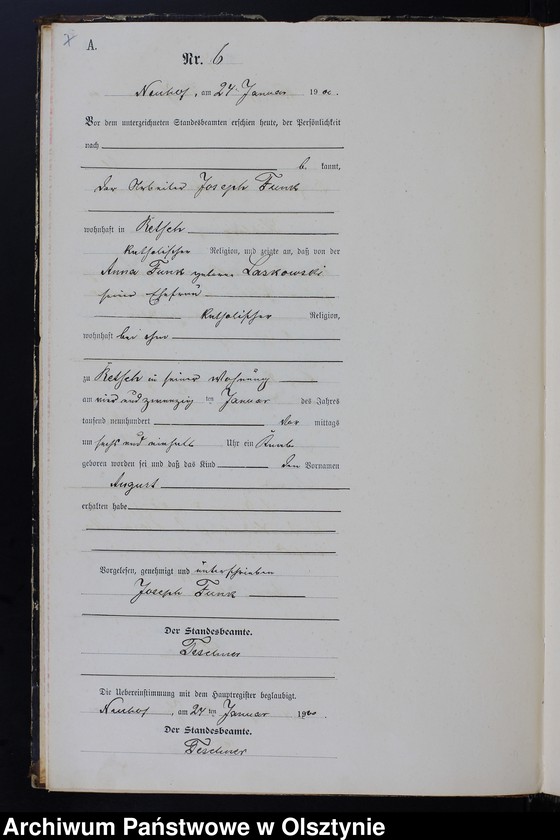 A.
Nr. 6
Neuhof, am 24 Januar 1900.
Vor dem unterzeichneten Standesbeamten erschien heute, der Persönlichkeit
nach
bekannt,
der Arbeiter Joseph Funk
wohnhaft in Retsch
katholischer Religion, und zeigte an, daß von der
Anna Funk geborene Laskowski
seiner Ehefrau
katholischer Religion,
wohnhaft bei ihm
zu Retsch in seiner Wohnung
am vier und zwanzig ten Januar des Jahres
tausend neunhundert vor mittags
um sechs und einhalb Uhr ein Knabe
geboren worden sei und daß das Kind den Vornamen
August
erhalten habe
Vorgelesen, genehmigt und unterschrieben
Joseph Funk
Der Standesbeamte.
Teschner
Die Uebereinstimmung mit dem Hauptregister beglaubigt.
Neuhof, am 24 ten Januar 1900
Der Standesbeamte.
Teschner
Archiwum Państwowe w Olsztynie